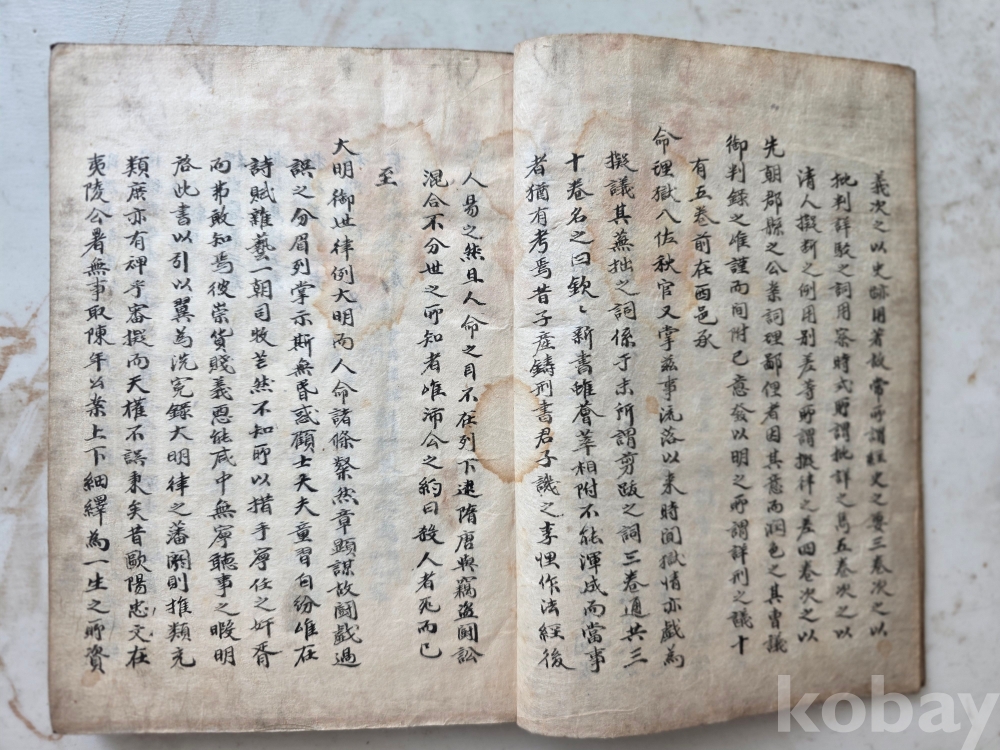 義次之以史跡用著故常所謂經史之要三卷次之以
批判詳駁之詞用察時式所謂批詳之雋五卷次之以
清人擬斷之例用別差等所謂擬律之差四卷次之以
先朝郡縣之公案詞理鄙俚者因其意而潤色之其曹議
御判錄之唯謹而間附己意發以明之所謂詳刑之議十
有五卷前在西邑承
命理獄入佐秋官又掌茲事流落以來時聞獄情亦戲為
擬議其蕪拙之詞係于末所謂剪跋之詞三卷通共三
十卷名之曰欽〻新書雖薈萃相附不能渾成而當事
者猶有考焉昔子產鑄刑書君子譏之李悝作法經後
人易之然且人命之目不在列下逮隋唐與竊盜鬪訟
混合不分世之所知者唯沛公之約曰殺人者死而已
至
大明御世律例大明而人命諸條粲然章顯謀故鬪戲過
誤之分眉列掌示斯無昏惑顧士大夫童習白紛唯在
詩賦雜藝一朝司牧芒然不知所以措手寧任之奸胥
而弗敢知焉彼崇貨賤義惡能咸中無寧聽事之暇明
啓此書以引以翼為洗冤錄大明律之藩閼則推類充
類庶亦有裨乎審擬而天權不誤秉矣昔歐陽忠文在
夷陵公署無事取陳年公案上下紬繹為一生之所資
kobay